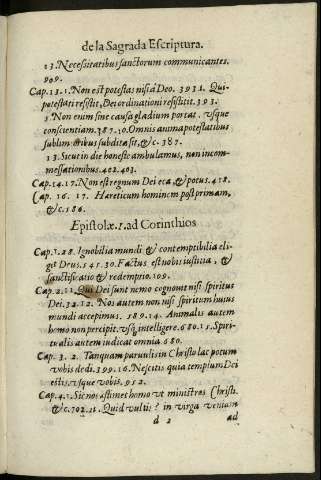 de la Sagrada Escriptura.
13. Necessitatibus sanctorum communicantes.
909.
Cap. 13. 1. Non est potestas nisi à Deo. 3931. Qui
potestati resistit, Dei ordinationi resistitit. 393.
5 Non enim sine causa gladium portat. vsque
conscientiam. 387. 30. Omnis anima potestatibus
sublimioribus subdita sit, &c. 387.
13. Sicut in die honeste ambulamus, non in comes-
messationibus. 402. 403.
Cap. 14. 17. Non est regnum Dei eca, & potus. 418.
Cap. 16. 17. Hæreticum hominem post primam,
&c. 186.
Epistolæ. 1. ad Corinthios
Cap. 1. 28. Ignobilia mundi & contemptibilia eli-
git Deus. 541. 30. Factus est nobis iustitia, &
sanctificatio & redemptio. 109.
Cap. 2. 11. Qui Dei sunt nemo cognouit nisi spiritus
Dei. 32. 12. Nos autem non nisi spiritum huius
mundi accepimus. 389. 14. Animalis autem
homo non percipit. vsq; intelligere. 680. 15. Spiri-
tualis autem iudicat omnia. 680.
Cap. 3. 2. Tanquam paruulis in Christo lac potum
vobis dedi. 399. 16. Nescitis quia templum Dei
estis. vsque vobis. 952.
Cap. 4. 1. Sic nos æstimet homo vt ministros Christi.
&c. 702. 21. Quid vultis? in virga veniam
d 2 ad